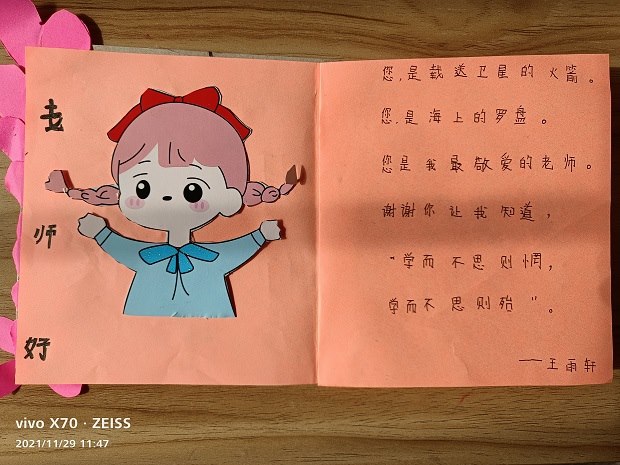 老师好
您,是载送卫星的火箭。
您.是海上的罗盘。
您是我最敬爱的老师。
谢谢你让我知道,
“学而不思则惘,
学而不思则殆”。
——王雨轩
vivo X70 · ZEISS
2021/11/29 11:47